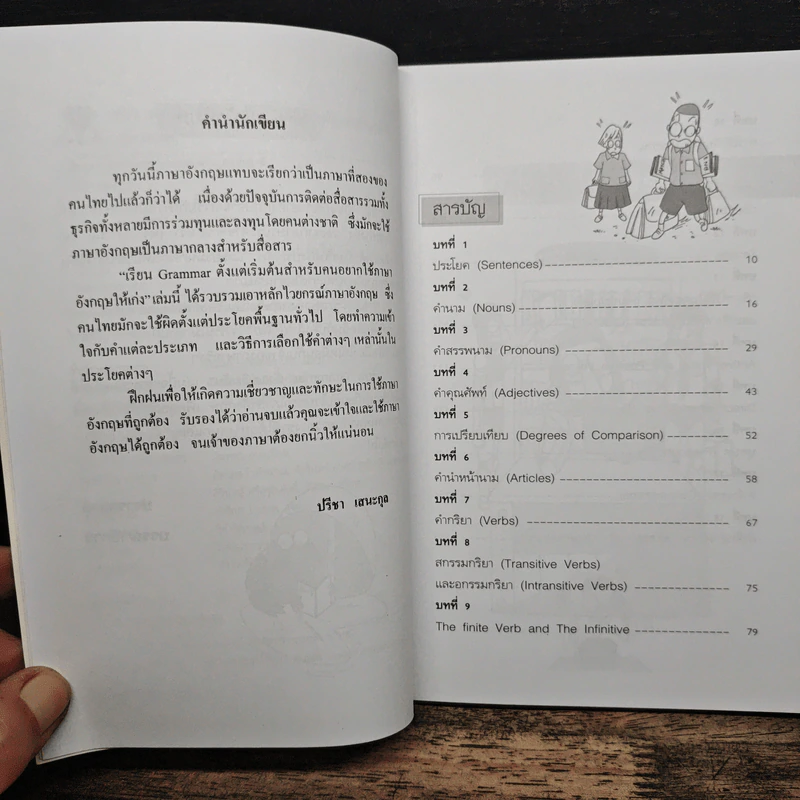 คำนำนักเขียน
ทุกวันนี้ภาษาอังกฤษแทบจะเรียกว่าเป็นภาษาที่สองของ
คนไทยไปแล้วก็ว่าได้ เนื่องด้วยปัจจุบันการติดต่อสื่อสารรวมทั้ง
ธุรกิจทั้งหลายมีการร่วมทุนและลงทุนโดยคนต่างชาติ ซึ่งมักจะใช้
ภาษาอังกฤษเป็นภาษากลางสำหรับสื่อสาร
“เรียน Grammar ตั้งแต่เริ่มต้นสำหรับคนอยากใช้ภาษา
อังกฤษให้เก่ง” เล่มนี้ ได้รวบรวมเอาหลักไวยกรณ์ภาษาอังกฤษ ซึ่ง
คนไทยมักจะใช้ผิดตั้งแต่ประโยคพื้นฐานทั่วไป โดยทำความเข้า
ใจกับคำแต่ละประเภท และวิธีการเลือกใช้คำต่างๆ เหล่านั้นใน
ประโยคต่างๆ
ฝึกฝนเพื่อให้เกิดความเชี่ยวชาญและทักษะในการใช้ภาษา
อังกฤษที่ถูกต้อง รับรองได้ว่าอ่านจบแล้วคุณจะเข้าใจและใช้ภาษา
อังกฤษได้ถูกต้อง จนเจ้าของภาษาต้องยกนิ้วให้แน่นอน
ปรีชา เสนะกุล
สารบัญ
บทที่ 1
ประโยค (Sentences) 10
บทที่ 2
คำนาม (Nouns) 16
บทที่ 3
คำสรรพนาม (Pronouns) 29
บทที่ 4
คำคุณศัพท์ (Adjectives) 43
บทที่ 5
การเปรียบเทียบ (Degrees of Comparison) 52
บทที่ 6
คำนำหน้านาม (Articles) 58
บทที่ 7
คำกริยา (Verbs) 67
บทที่ 8
สกรรมกริยา (Transitive Verbs)
และอกรรมกริยา (Intransitive Verbs) 75
บทที่ 9
The finite Verb and The Infinitive 79